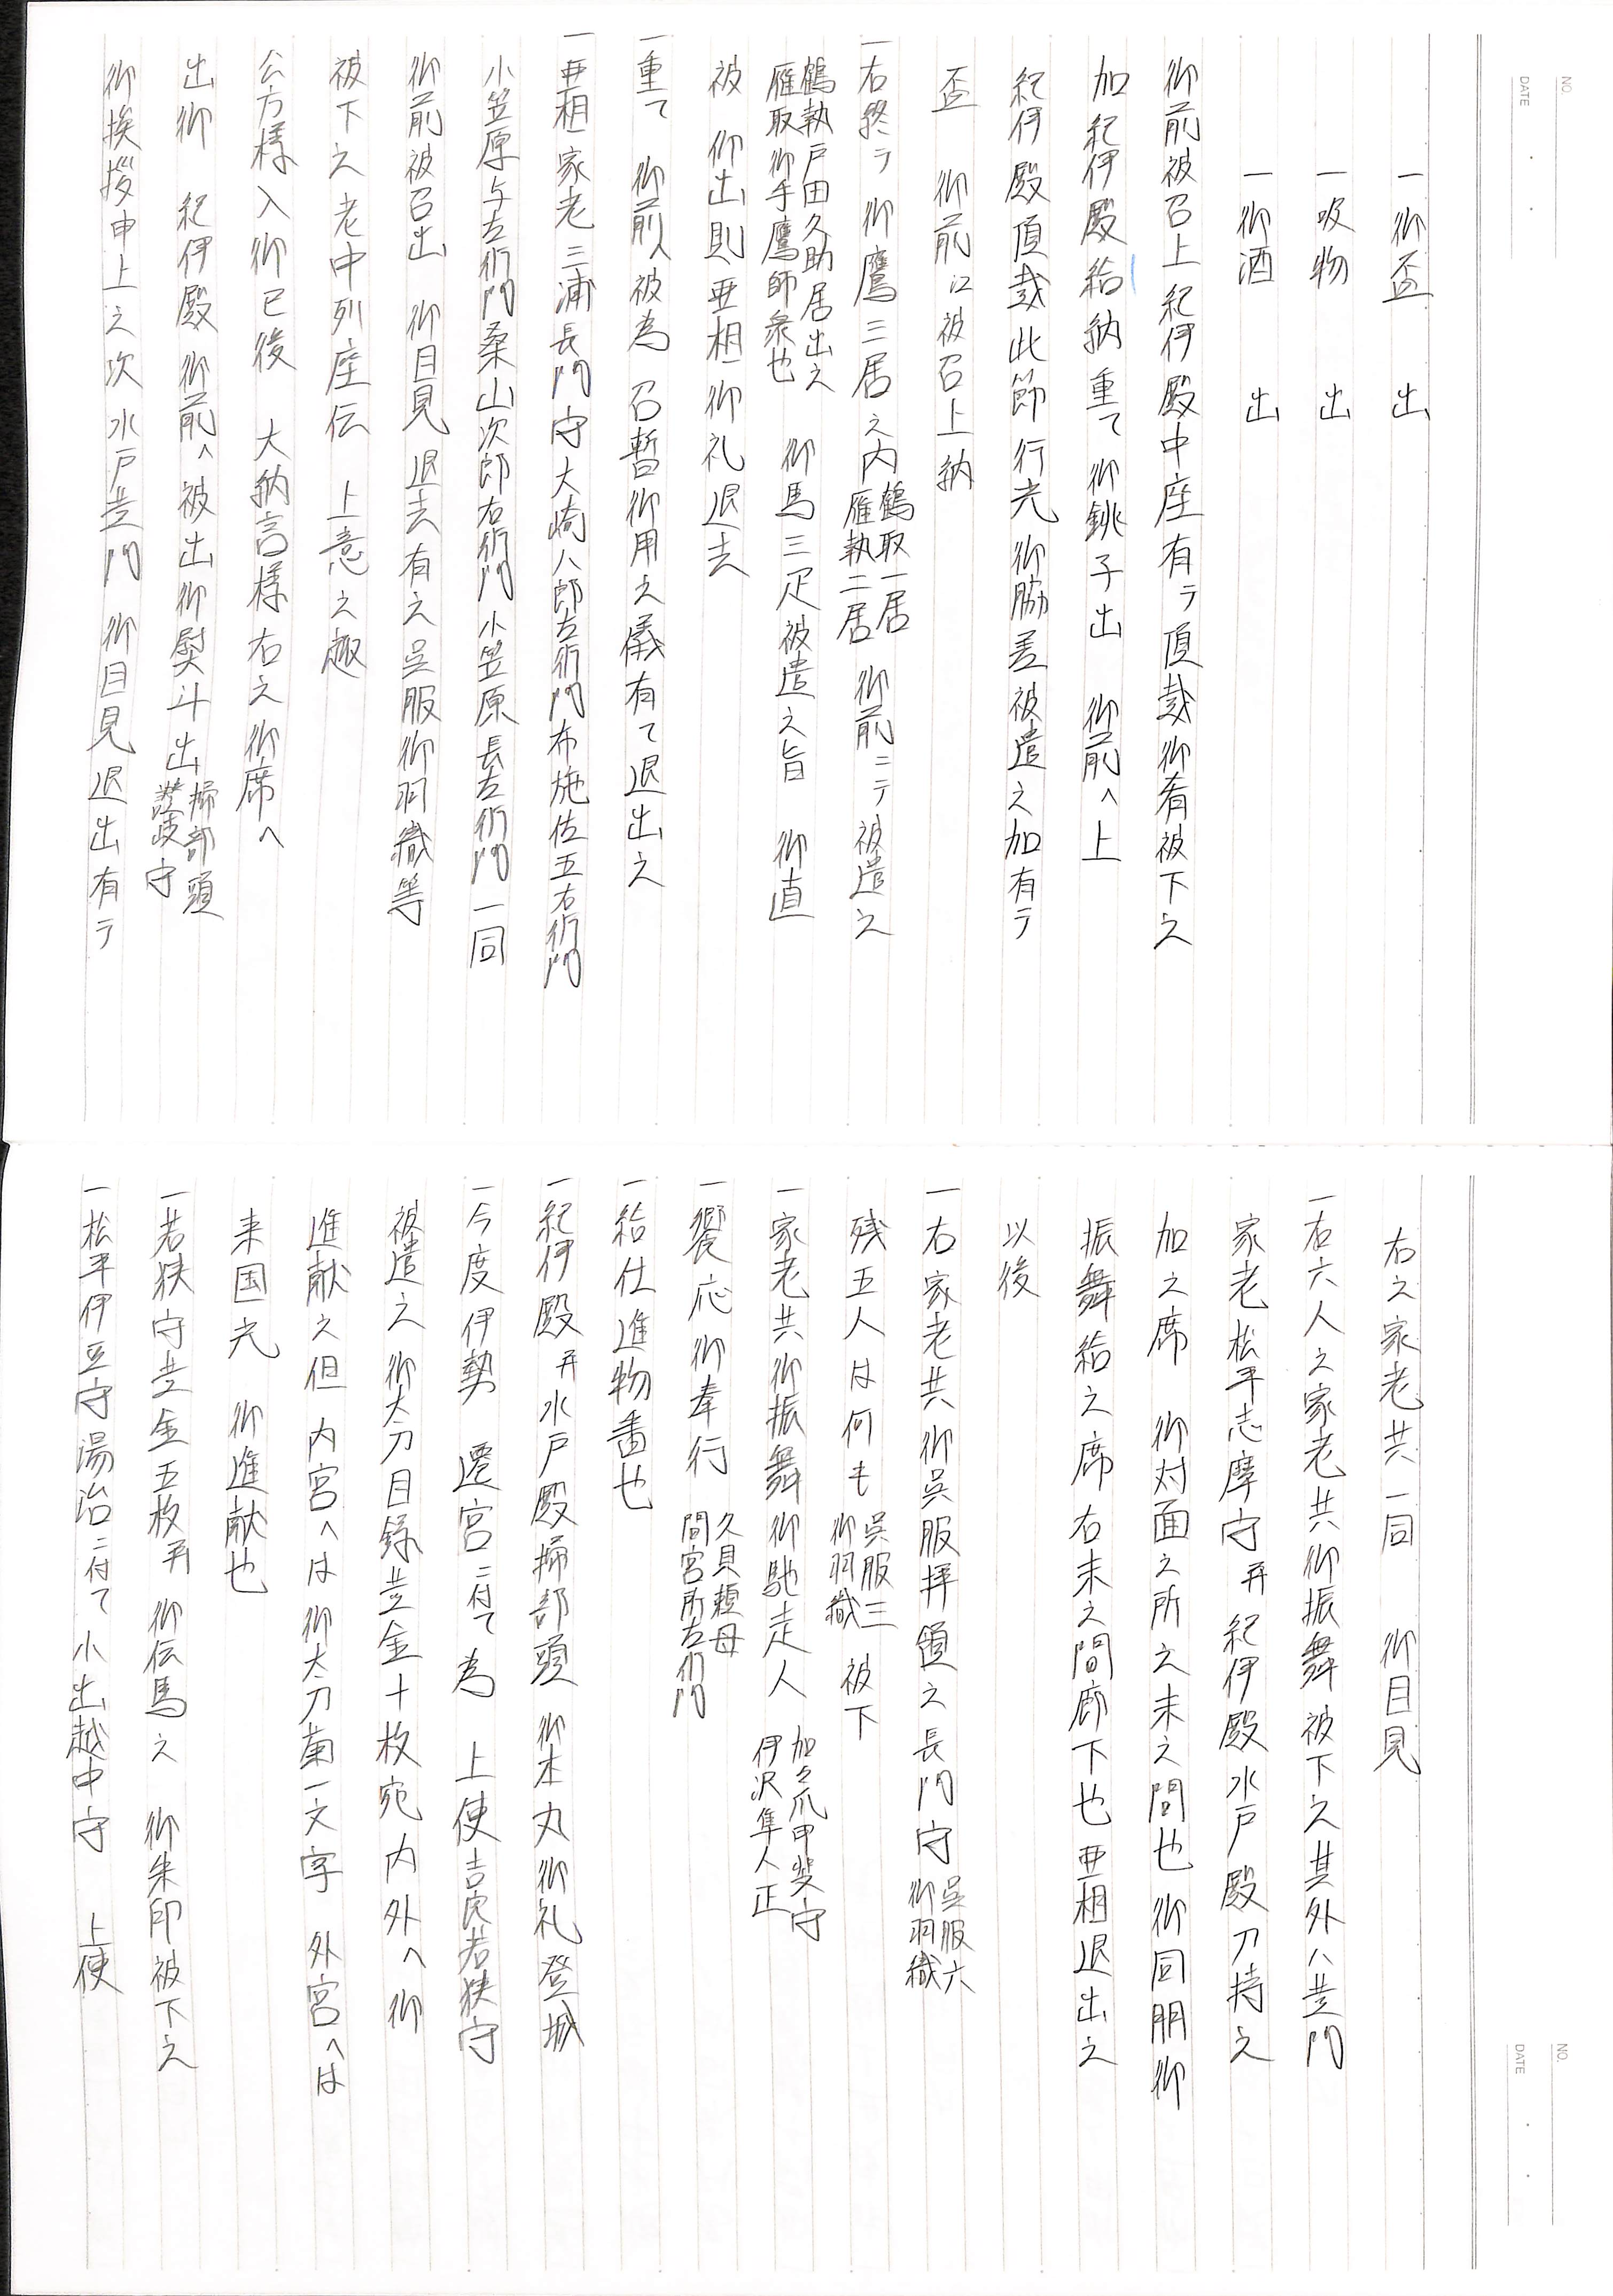 NO.
DATE
一御盃　出
一吸物　出
一御酒　出
御前被召上紀伊殿中座有テ頂戴御肴被下之
加紀伊殿給納重て御銚子出　御前へ上
紀伊殿頂戴此節行光御脇差被遣之加有テ
盃　御前江被召上納
一右終テ御鷹三居之内鶴取一居雁執二居　御前ニテ被遣之
鶴執戸田久助居出之雁取御手鷹師衆也　御馬三疋被遣之旨　御直
被　仰出則亜相御礼退去
一重て　御前へ被為　召暫御用之儀有て退出之
一亜相家老三浦長門守大崎八郎右衛門布施佐五右衛門
小笠原与左衛門桑山次郎右衛門小笠原長左衛門一同
御前被召出　御目見退去有之呉服御羽織等
被下之老中列座伝　上意之趣
公方様入御已後　大納言様右之御席へ
出御　紀伊殿　御前へ被出御熨斗出掃部頭讃岐守
御挨拶申上之次水戸黄門　御目見退出有テ
右之家老共一同　御目見
一右六人之家老共御振舞被下之其外ハ黄門
家老松平志摩守并紀伊殿水戸殿刀持之
加之席　御対面之所之末之間也御同朋御
振舞給之席右末之間廊下也亜相退出之
以後
一右家老共御呉服拝領之長門守呉服六御羽織
残五人は何も呉服三御羽織被下
一家老共御振舞御馳走人　加々爪甲斐守伊沢隼人正
一饗応御奉行　久貝頼母間宮所左衛門
一給仕進物番也
一紀伊殿并水戸殿掃部頭　御本丸御礼登城
一今度伊勢　遷宮ニ付て為　上使吉良若狭守
被遣之御太刀目録黄金十枚宛内外へ御
進献之但内宮へは御太刀菊一文字　外宮へは
来国光　御進献也
一若狭守黄金五枚并　御伝馬之　御朱印被下之
一松平伊豆守湯治ニ付て小出越中守　上使
NO.
DATE